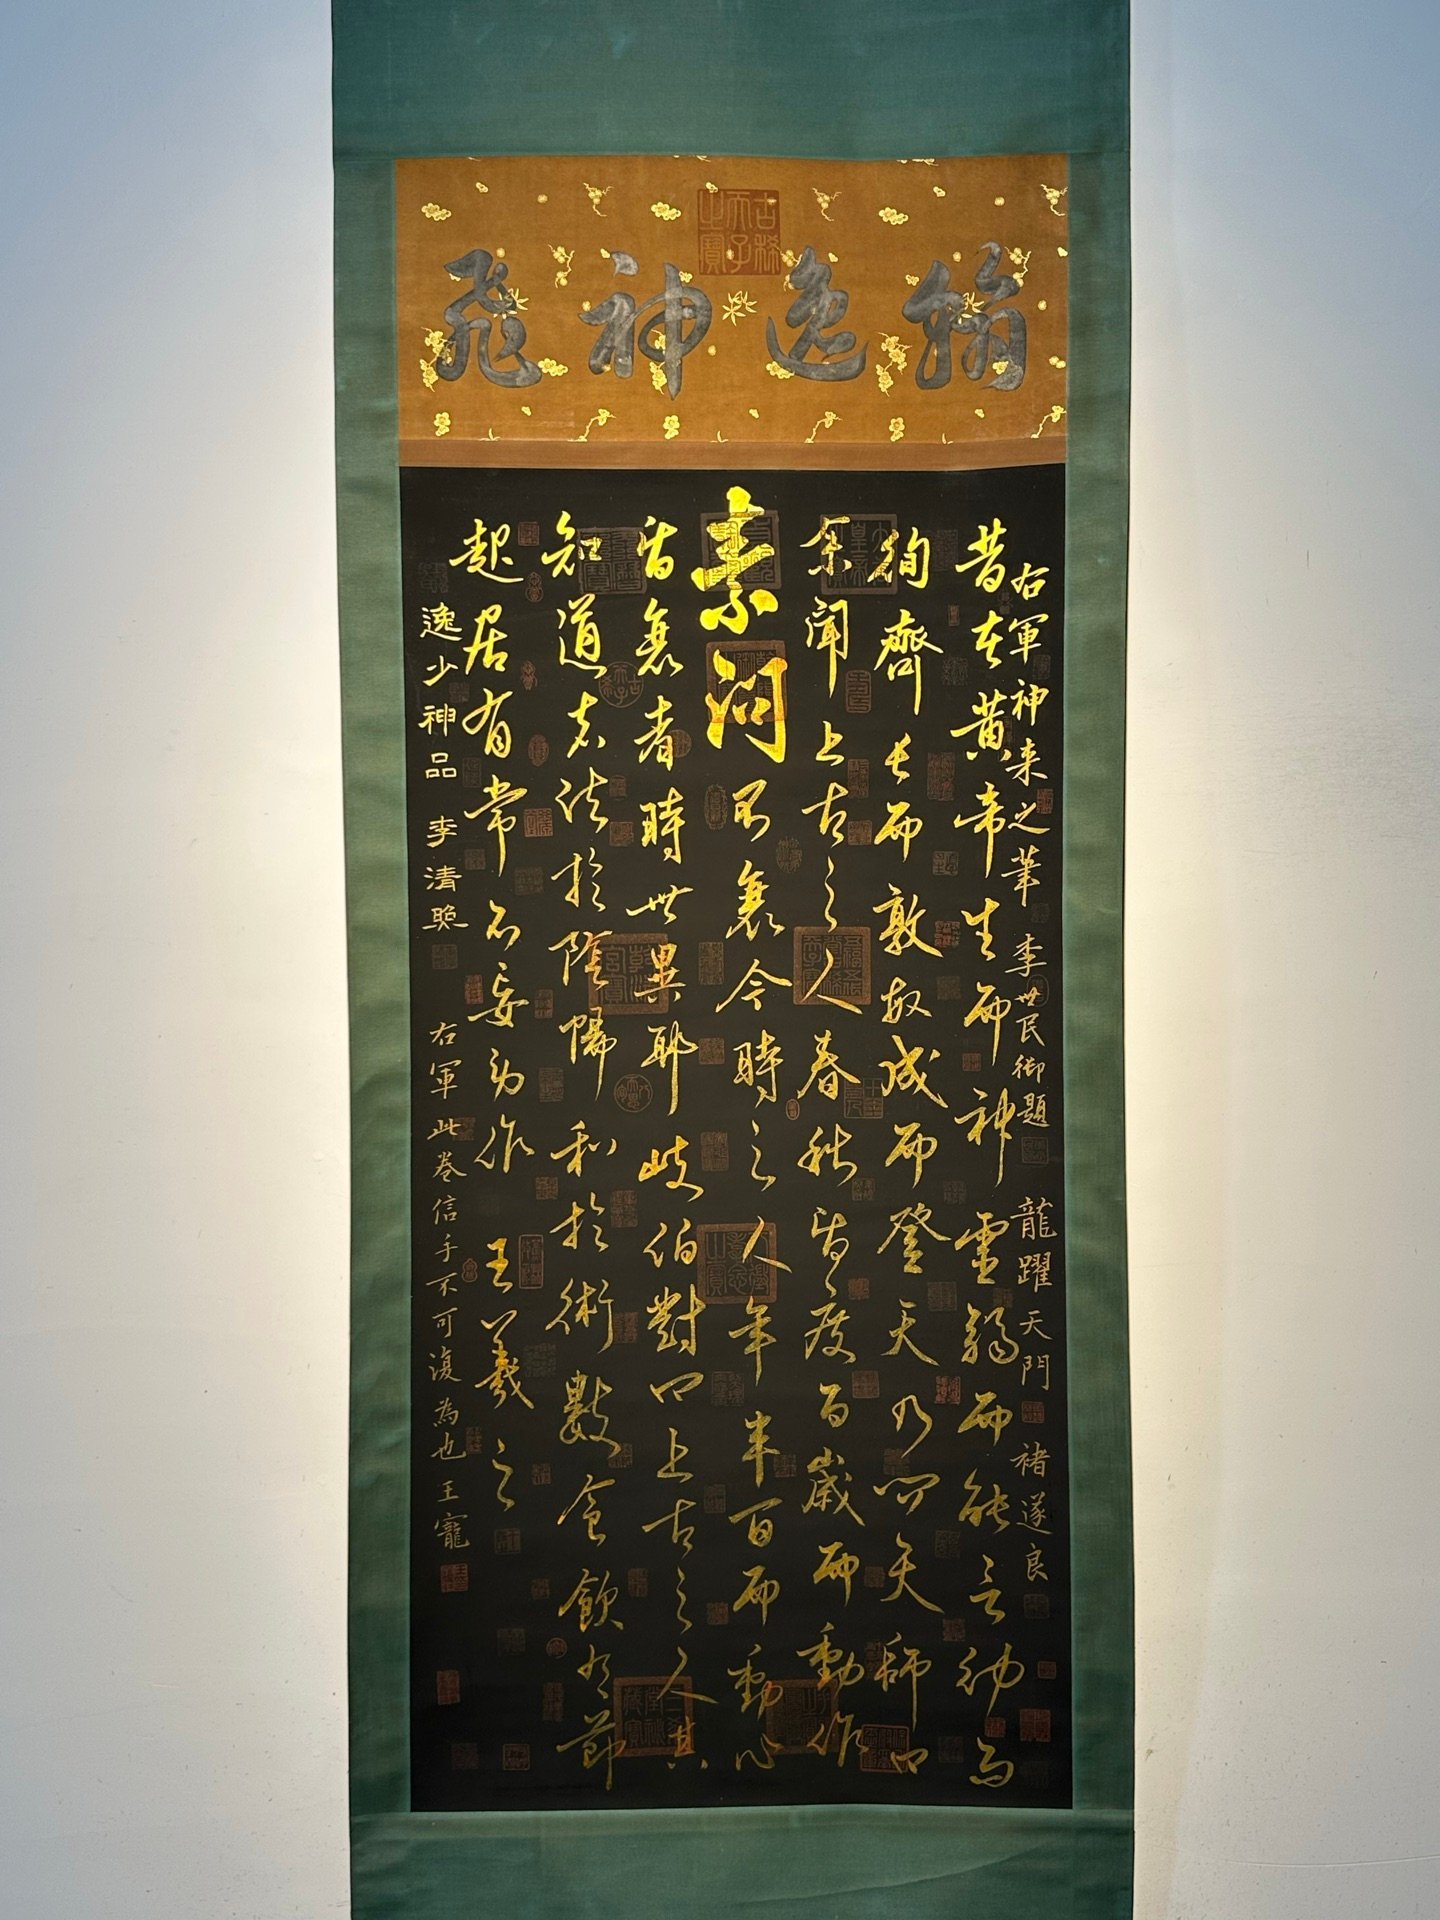 古稀天子之寶
翰逸神飛
右軍神来之筆 李世民御題 龍躍天門 褚遂良
昔在黄帝生而神靈弱而能言幼而
徇齊長而敦敏成而登天乃问天師曰
余聞上古之人春秋皆度百歲而動作
素问
不衰今時之人年半百而動作
皆衰者時世異耶岐伯對曰上古之人其
知道者法於陰陽和於術數食飲有節
起居有常不妄動作 王羲之
逸少神品 李清照 右軍此卷信手不可復為也 王寵